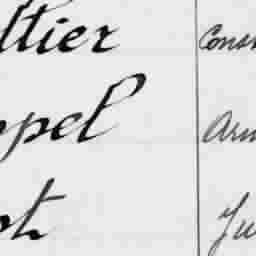 ltier Cons
ppel Arm
ot Ju